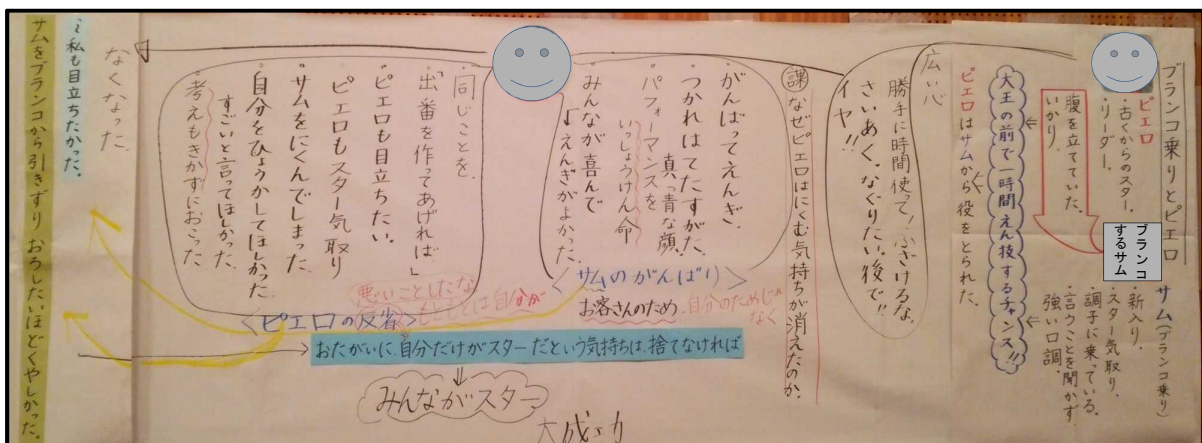 ブランコ乗りとピエロ
ピエロ
・古くからのスター。
・リーダー。
腹を立てていた。
いかり。
ブランコ
するサム
サム(ブランコ乗り)
・新入り。
・スター気取り
・調子に乗っている。
・言うことを聞かず。
強い口調。
大王の前で一時間えん技するチャンス!!
ピエロはサムから役をとられた。
広い心
勝手に時間使って!ふざけるな。
さいあく。なぐりたい。後で!!
イヤ!!
課 なぜピエロはにくむ気持ちが消えたのか。
がんばってえんぎ。
つかれはてたすがた。
真っ青な顔。
パフォーマンスを
いっしょうけん命
みんなが喜んで
↓えんぎがよかった。
<サムのがんばり>
お客さんのため。自分のためじゃ
なく
同じことを。
・「出番を作ってあげれば」
・ピエロも目立ちたい。
ピエロもスター気取り
・サムをにくんでしまった。
・自分をひょうかしてほしかった
すごいと言ってほしかった。
・考えもきかずにおこった
<ピエロの反省>
悪いことしたな
もともとは自分が
おたがいに、自分だけがスターだという気持ちは、捨てなければ
みんながスター
大成エカ
なくなった。
私も目立ちたかった。
サムをブランコから引きずりおろしたいほどくやしかった。